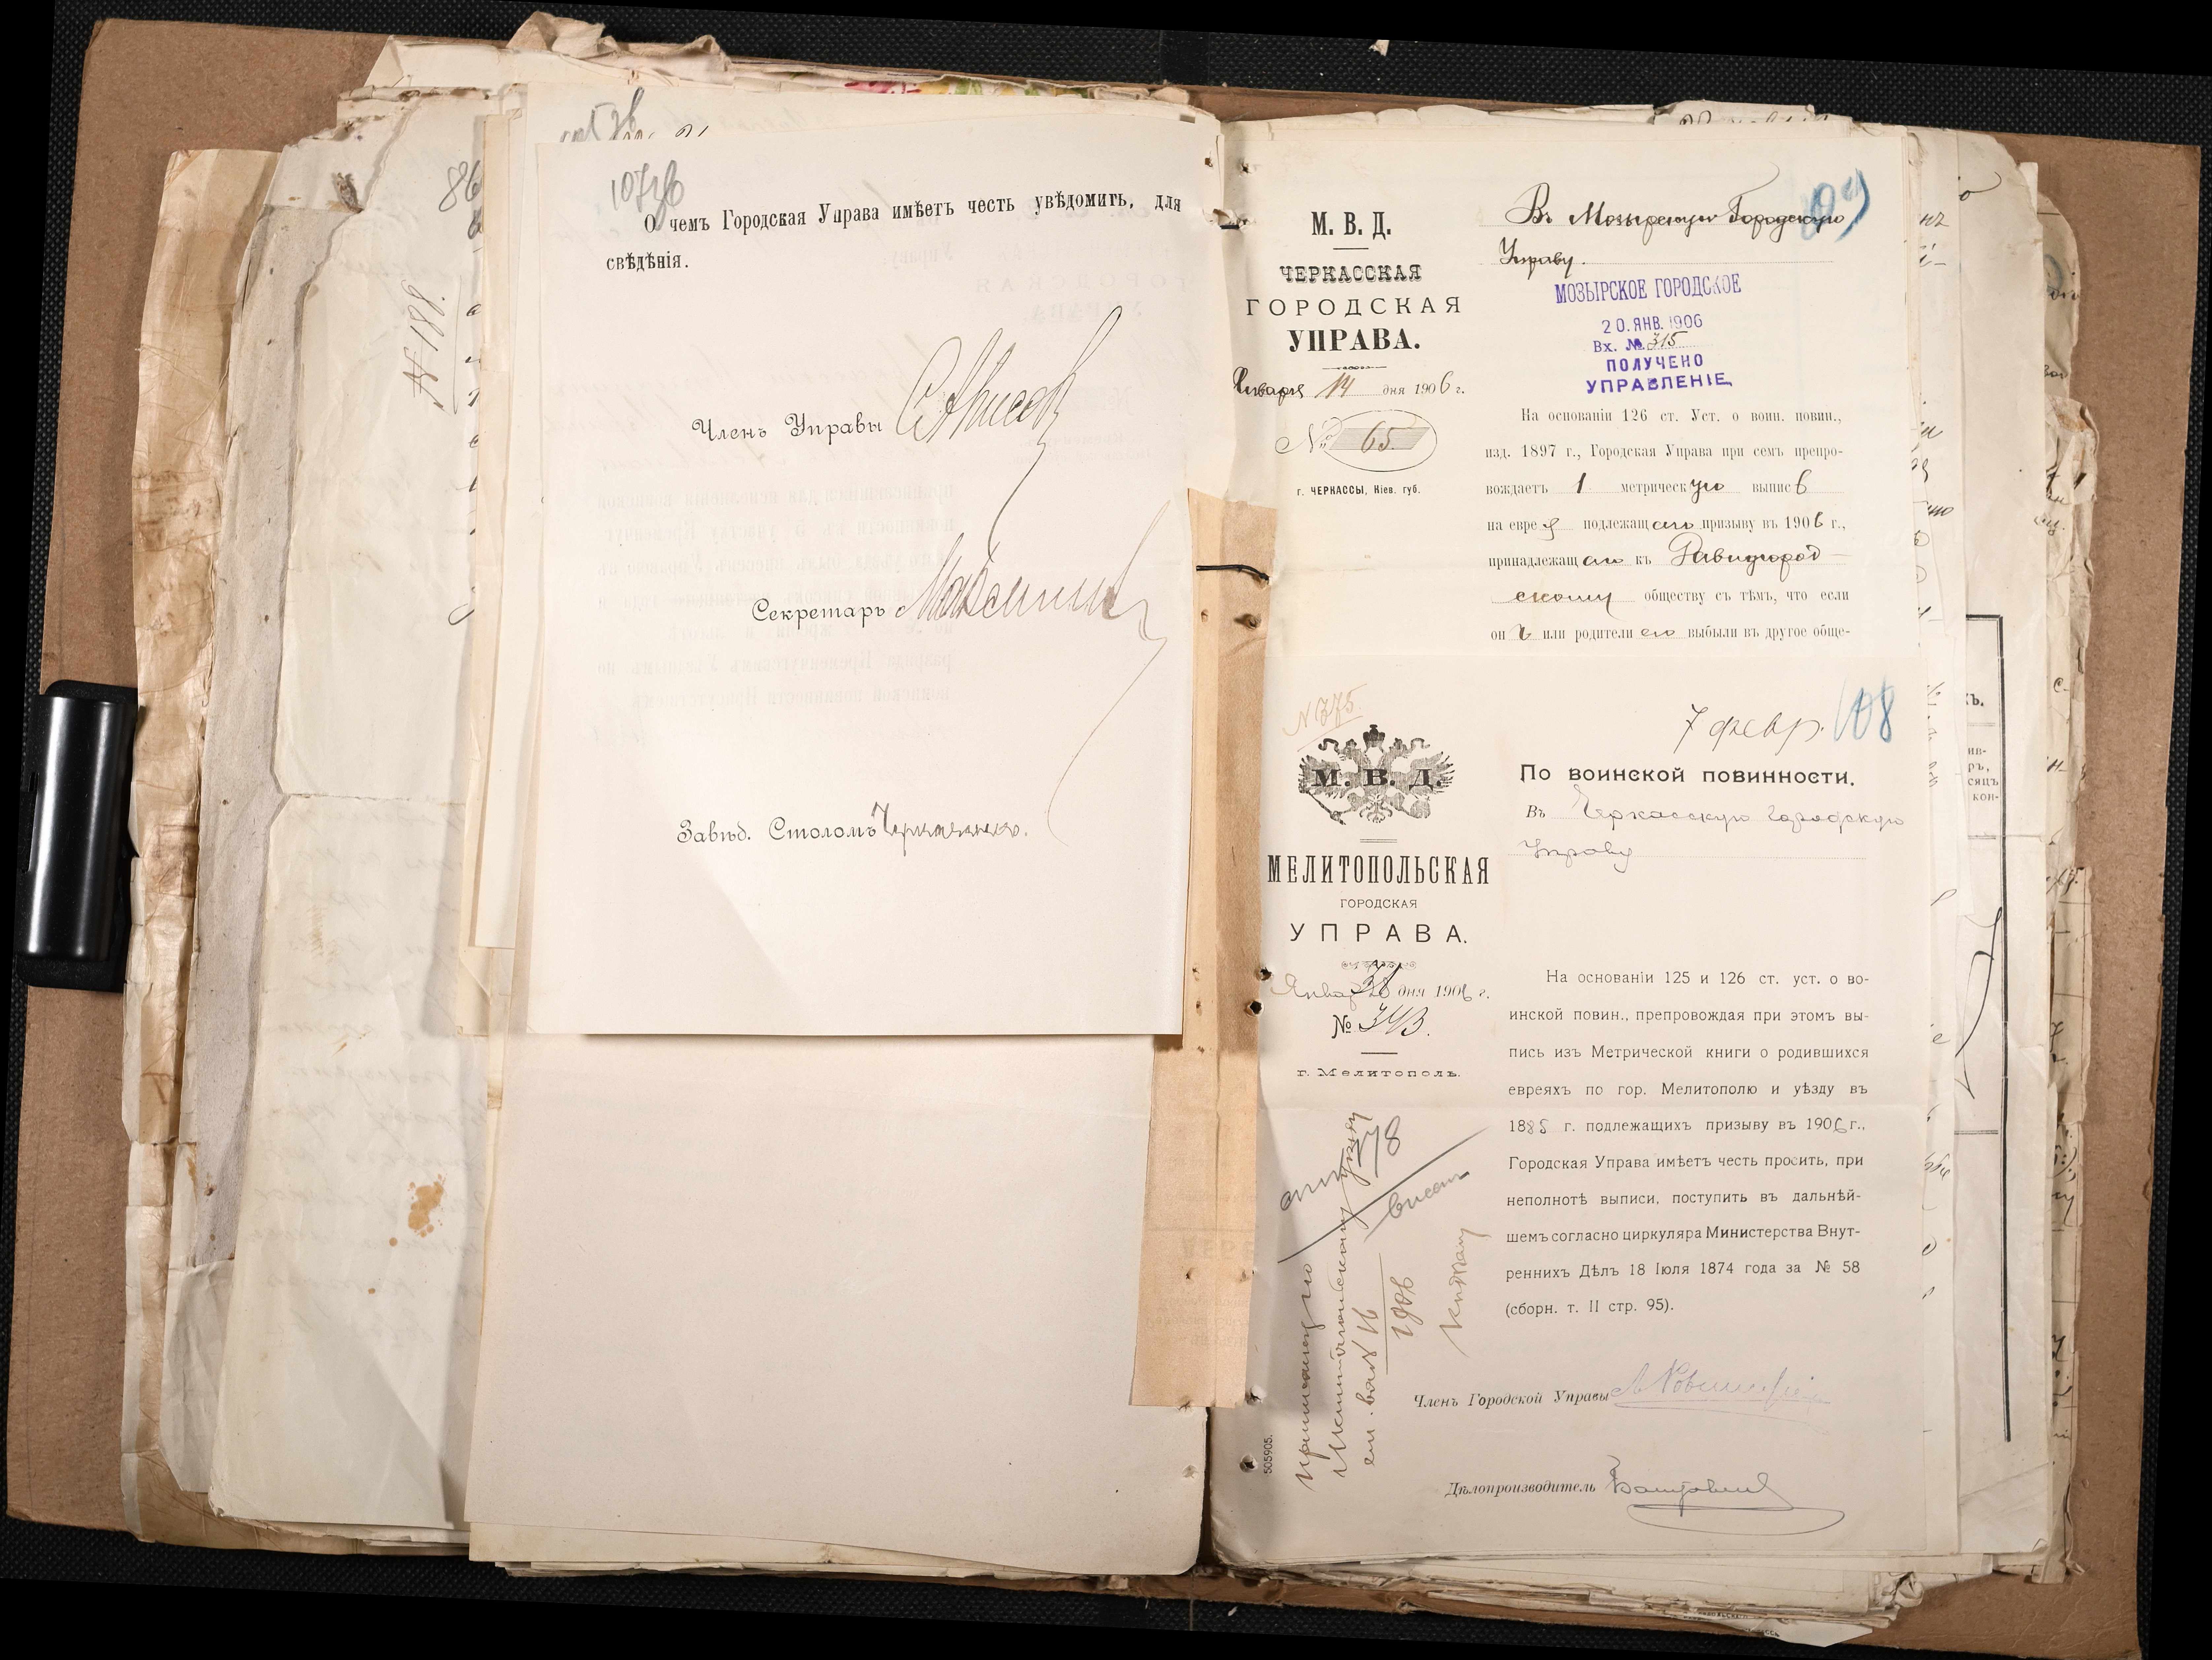 О чемъ Городская Управа имѣетъ честь увѣдомить, для
свѣдѣнія.
Членъ Управы
Секретарь
Завѣд. Столомъ
№ 188.
86
109
М. В. Д.
ЧЕРКАССКАЯ
ГОРОДСКАЯ
УПРАВА.
Января 14 дня 1906 г.
№ 65
г. ЧЕРКАССЫ, Кіев. губ.
Въ Мозырскую Городскую
Управу.
МОЗЫРСКОЕ ГОРОДСКОЕ
20. ЯНВ. 1906
Вх. № 315
ПОЛУЧЕНО
УПРАВЛЕНІЕ
На основаніи 126 ст. Уст. о воин. повин.,
изд. 1897 г., Городская Управа при семъ препро-
вождаетъ 1 метрическую выпис
на евре я подлежащ аго призыву въ 1906 г.,
принадлежащ аго къ
скому обществу съ тѣмъ, что если
он ъ или родители его выбыли въ другое обще-
№ 375.
7 февр. 108
М. В. Д.
МЕЛИТОПОЛЬСКАЯ
ГОРОДСКАЯ
УПРАВА.
Января дня 1906 г.
№ 343.
г. Мелитополь.
По воинской повинности.
Въ Черкасскую городскую
Управу
На основаніи 125 и 126 ст. уст. о во-
инской повин., препровождая при этомъ вы-
пись изъ Метрической книги о родившихся
евреяхъ по гор. Мелитополю и уѣзду въ
1885 г. подлежащихъ призыву въ 1906 г.,
Городская Управа имѣетъ честь просить, при
неполнотѣ выписи, поступить въ дальнѣй-
шемъ согласно циркуляра Министерства Внут-
реннихъ Дѣлъ 18 Іюля 1874 года за № 58
(сборн. т. II стр. 95).
Членъ Городской Управы
Дѣлопроизводитель
505905.